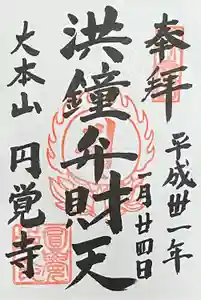 奉拝
平成卅一年
一月廿四日
洪鐘弁財天
大本山
円覚寺